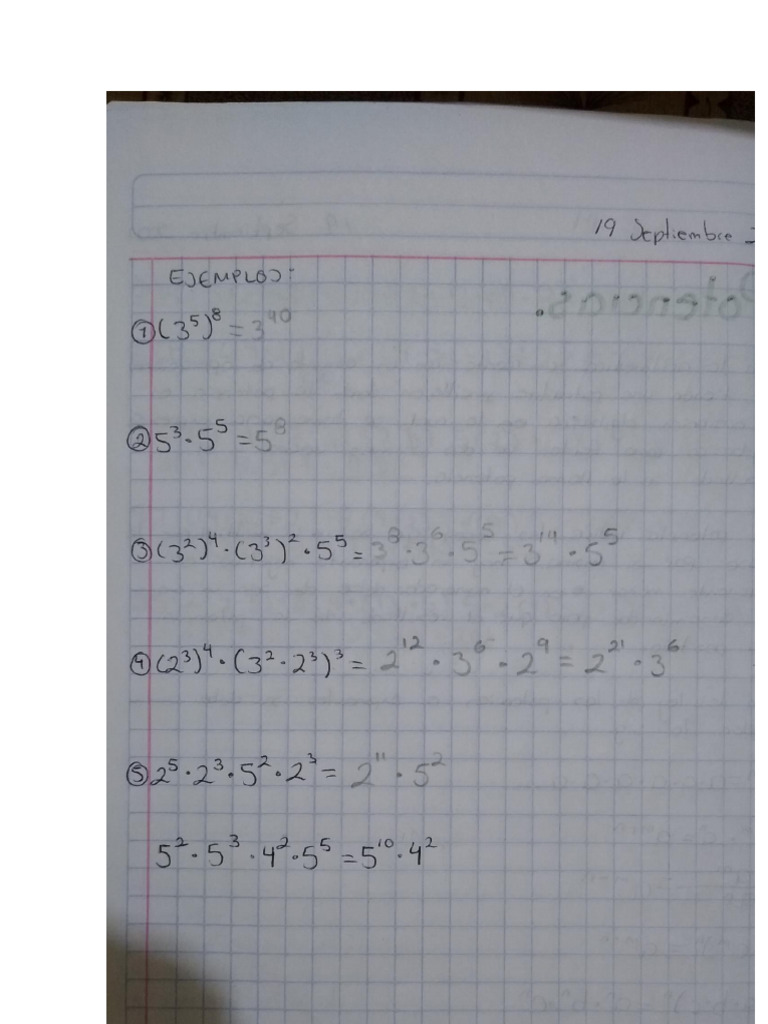 19 Septiembre
EJEMPLOS:
① (3⁵)⁸ = 3⁴⁰
② 5³ · 5⁵ = 5⁸
③ (3²)⁴ · (3³)² · 5⁵ = 3⁸ · 3⁶ · 5⁵ = 3¹⁴ · 5⁵
④ (2³)⁴ · (3² · 2³)³ = 2¹² · 3⁶ · 2⁹ = 2²¹ · 3⁶
⑤ 2⁵ · 2³ · 5² · 2³ = 2¹¹ · 5²
5² · 5³ · 4² · 5⁵ = 5¹⁰ · 4²